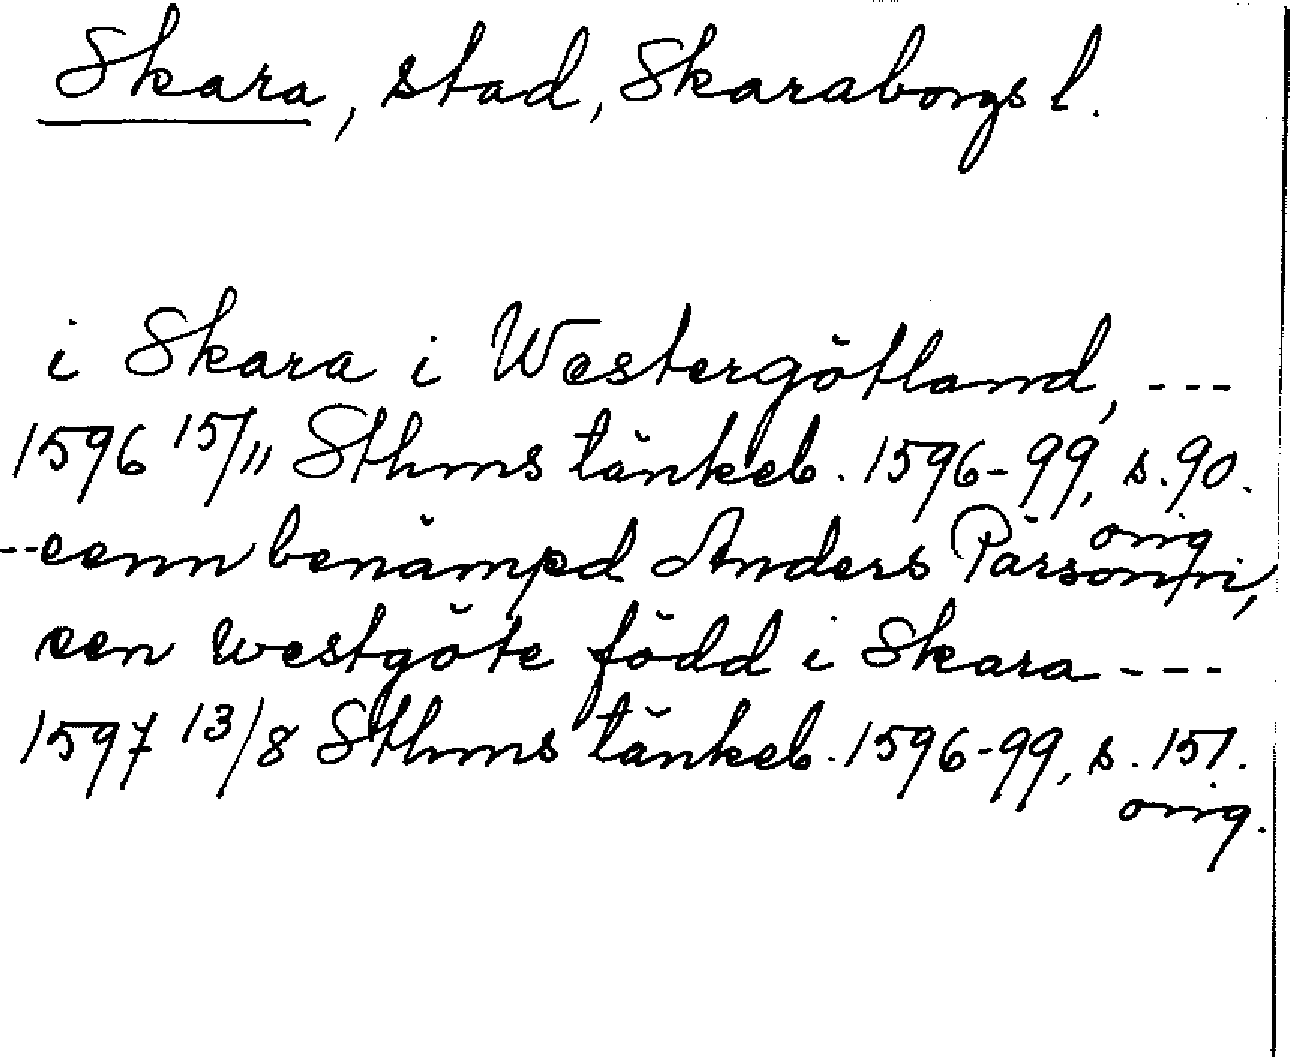 Skara, stad, Skaraborgs l.
i Skara i Westergötland, ---
1596 15/11 Sthms tänkeb. 1596-99, s. 90.
orig.
--eenn benämpd Anders Pärsonn,
een westgöte född i Skara ---
1597 13/8 Sthms tänkeb. 1596-99, s. 151.
orig.